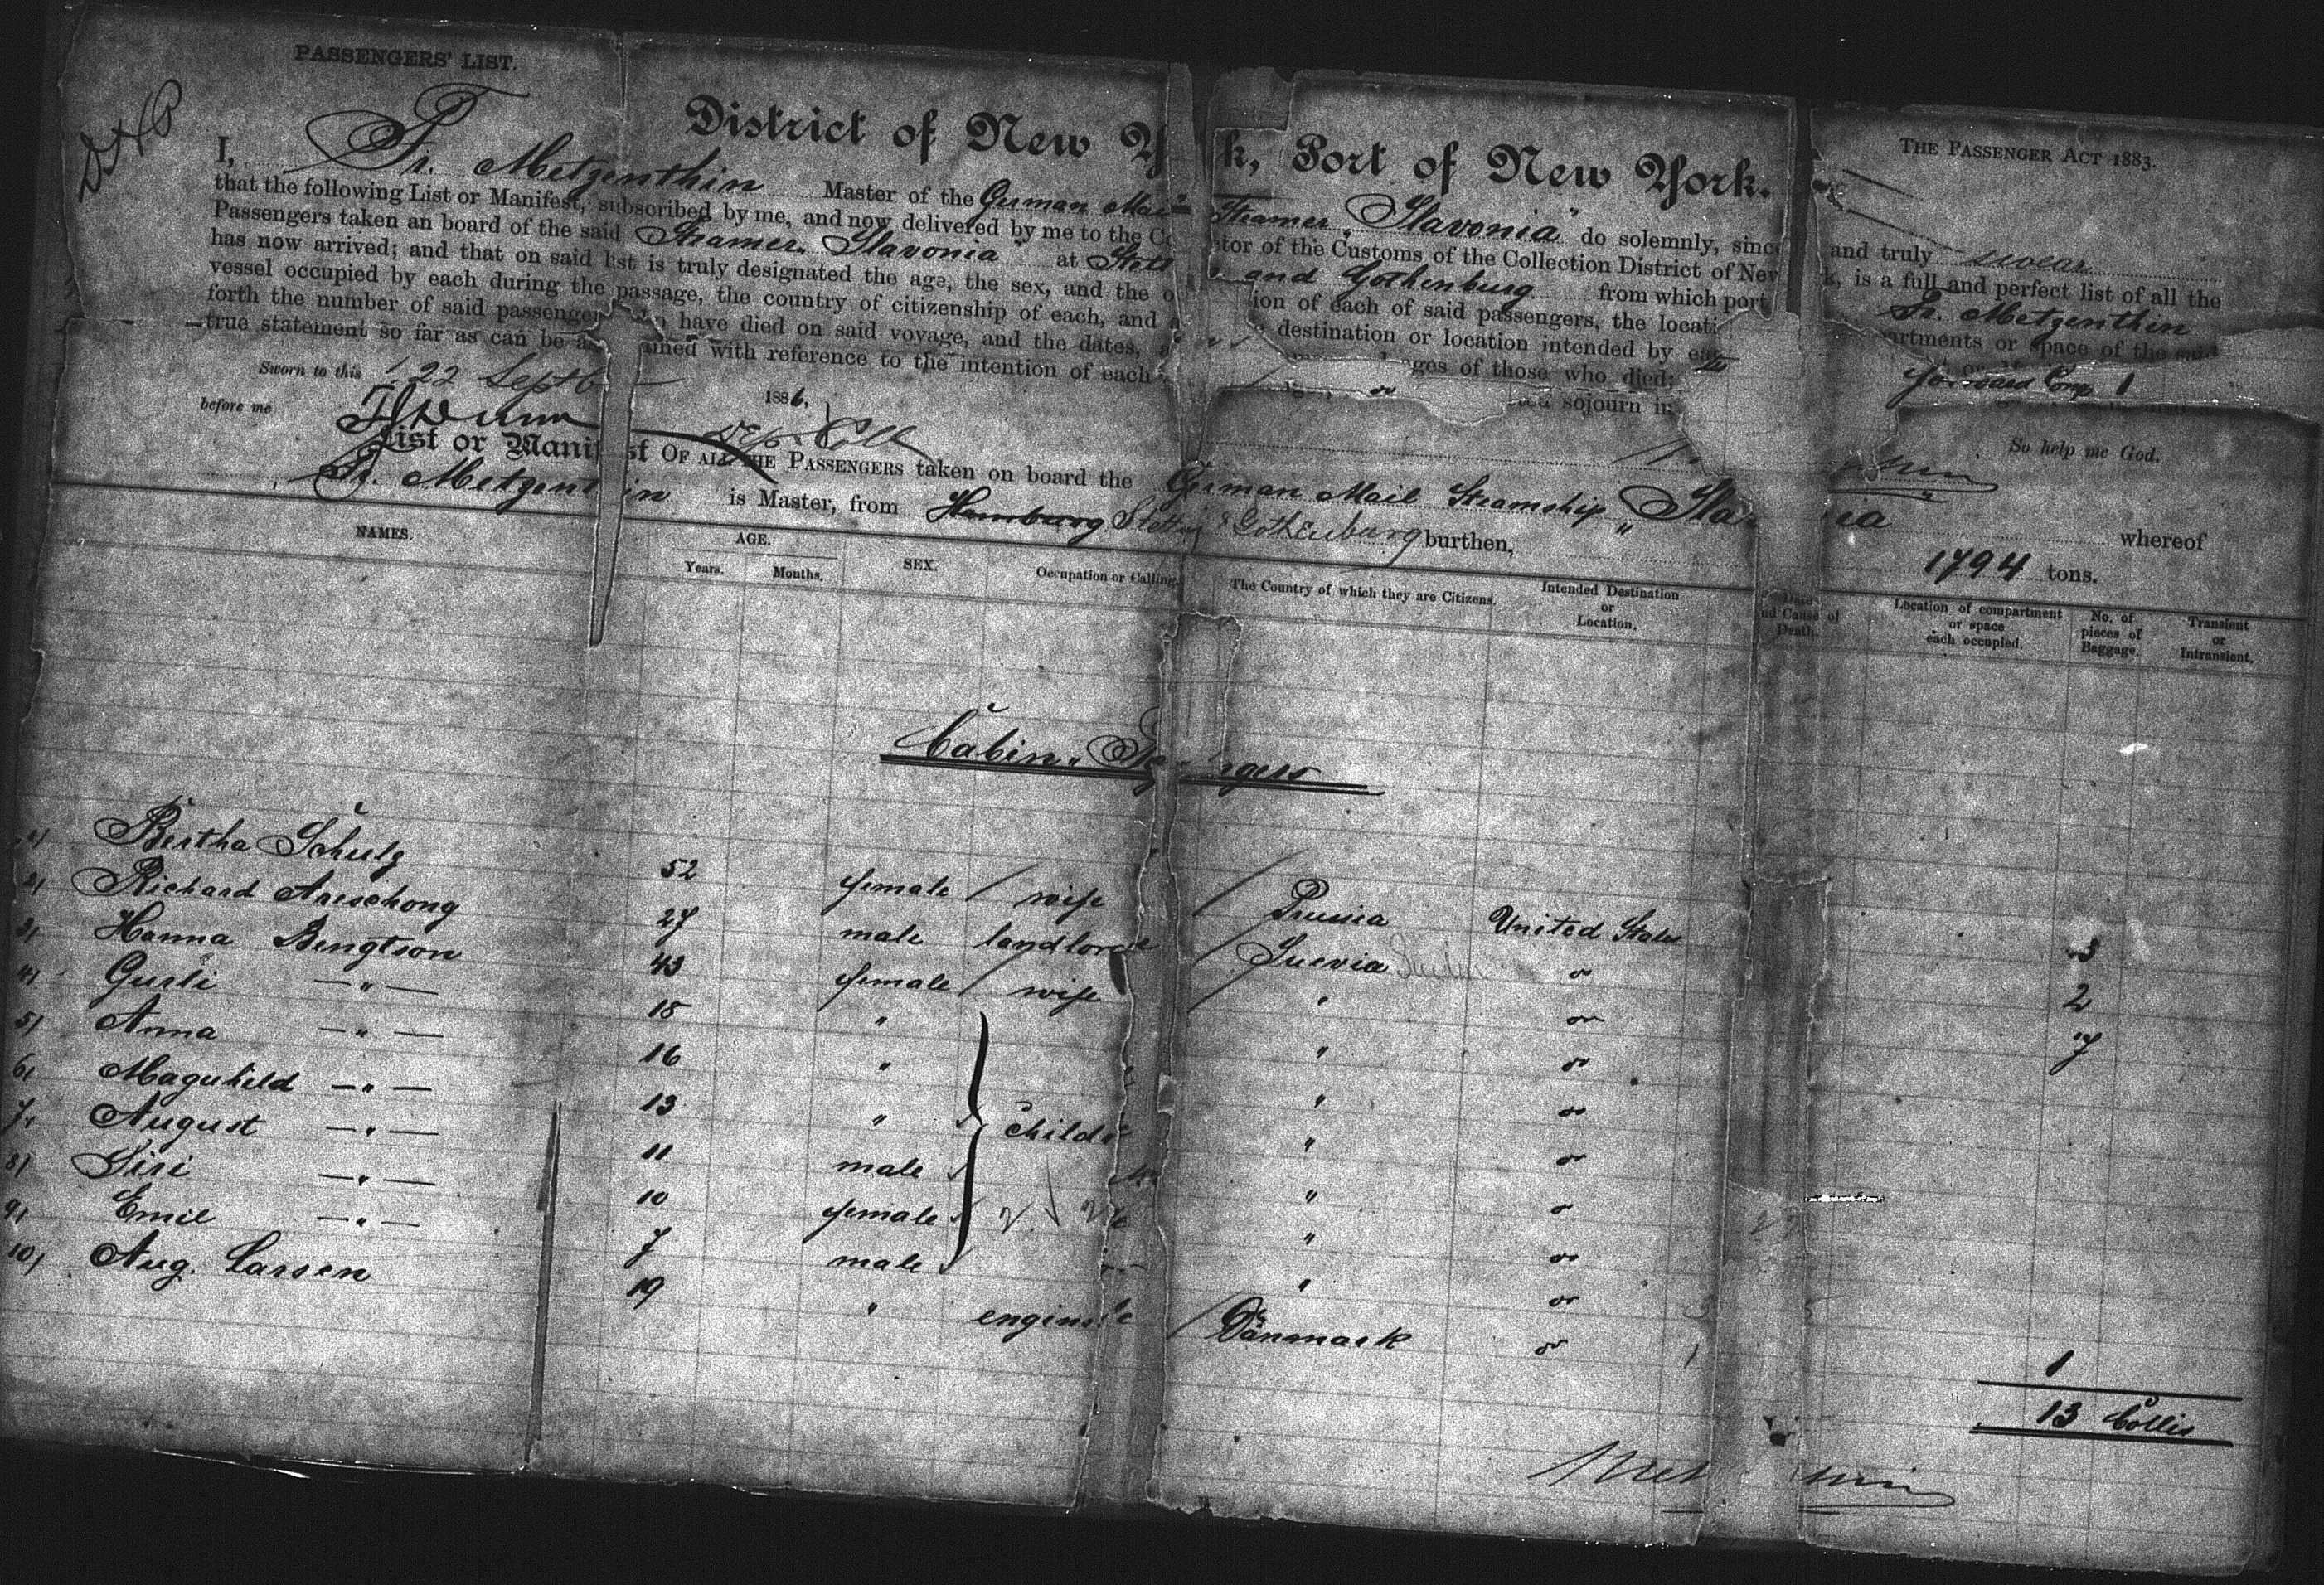 PASSENGERS' LIST.
THE PASSENGER ACT 1883.
District of New Y k, Port of New York.
I, Fr. Metzenthin Master of the German Mail Steamer „Slavonia" do solemnly, since and truly swear
that the following List or Manifest, subscribed by me, and now delivered by me to the Co tor of the Customs of the Collection District of New k, is a full and perfect list of all the
Passengers taken an board of the said Steamer „Slavonia" at Stett and Gothenburg from which port Fr. Metzenthin
has now arrived; and that on said list is truly designated the age, the sex, and the o ion of each of said passengers, the locati artments or space of the said
vessel occupied by each during the passage, the country of citizenship of each, and destination or location intended by ea
forth the number of said passengers have died on said voyage, and the dates, ges of those who died; forward Comp 1
true statement so far as can be a ained with reference to the intention of each sojourn in
So help me God.
Sworn to this 22 Septb 1886,
before me
List or Manif st OF ALL THE PASSENGERS taken on board the German Mail Steamship „Sla ia whereof
Fr. Metzent in is Master, from Hamburg Stettin & Gothenburg burthen, 1794 tons.
NAMES. AGE. Years. Months. SEX. Occupation or Calling. The Country of which they are Citizens. Intended Destination or Location. Date and Cause of Death. Location of compartment or space each occupied. No. of pieces of Baggage. Transient or Intransient.
Cabin-Pa ngers
1) Bertha Schulz 52 female / wife / Prussia United States 3
2) Richard Areschong 27 male landlord Suevia Sweden do 2
3) Hanna Bengtson 43 female / wife / " do 7
4) Gurli —"— 18 " " do
5) Anna —"— 16 " " do
6) Magnhild —"— 13 " childr " do
7) August —"— 11 male " do
8) Siri —"— 10 female " do
9) Emil —"— 7 male " do
10) Aug. Larsen 19 " engine / Dänmark do 1
13 Collis
Met hin